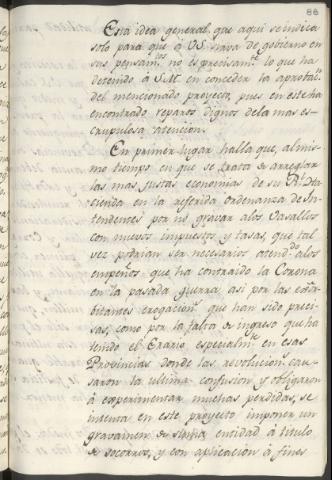 88
Esta idea general, que aqui se indica
solo para que à VS. sirva de gobierno en
sus pensam.tos no es precisam.te lo que ha
detenido à S.M. en conceder la aprobac.n
del mencionado proyecto, pues en este ha
encontrado reparos dignos dela mas es-
crupulosa atencion.
En primer lugar halla que, al mis-
mo tiempo en que se trata de arreglar
las mas justas economias de su R.l Ha-
cienda en la referida ordenanza de In-
tendentes por no gravar alos Vasallos
con nuevos impuestos y tasas, que tal
vez podrian ser necesarios atend.do alos
empeños que ha contraido la Corona
en la pasada guerra, asi por las exor-
bitantes erogacion.s que han sido preci-
sas, como por la falta de ingreso que ha
tenido el Erario especialm.te en esas
Provincias donde las revolucion.s cau-
saron la ultima confusion y obligaron
à experimentar muchas perdidas, se
intenta en este proyecto imponer un
gravamen de suma entidad à titulo
de socorros, y con aplicacion à fines